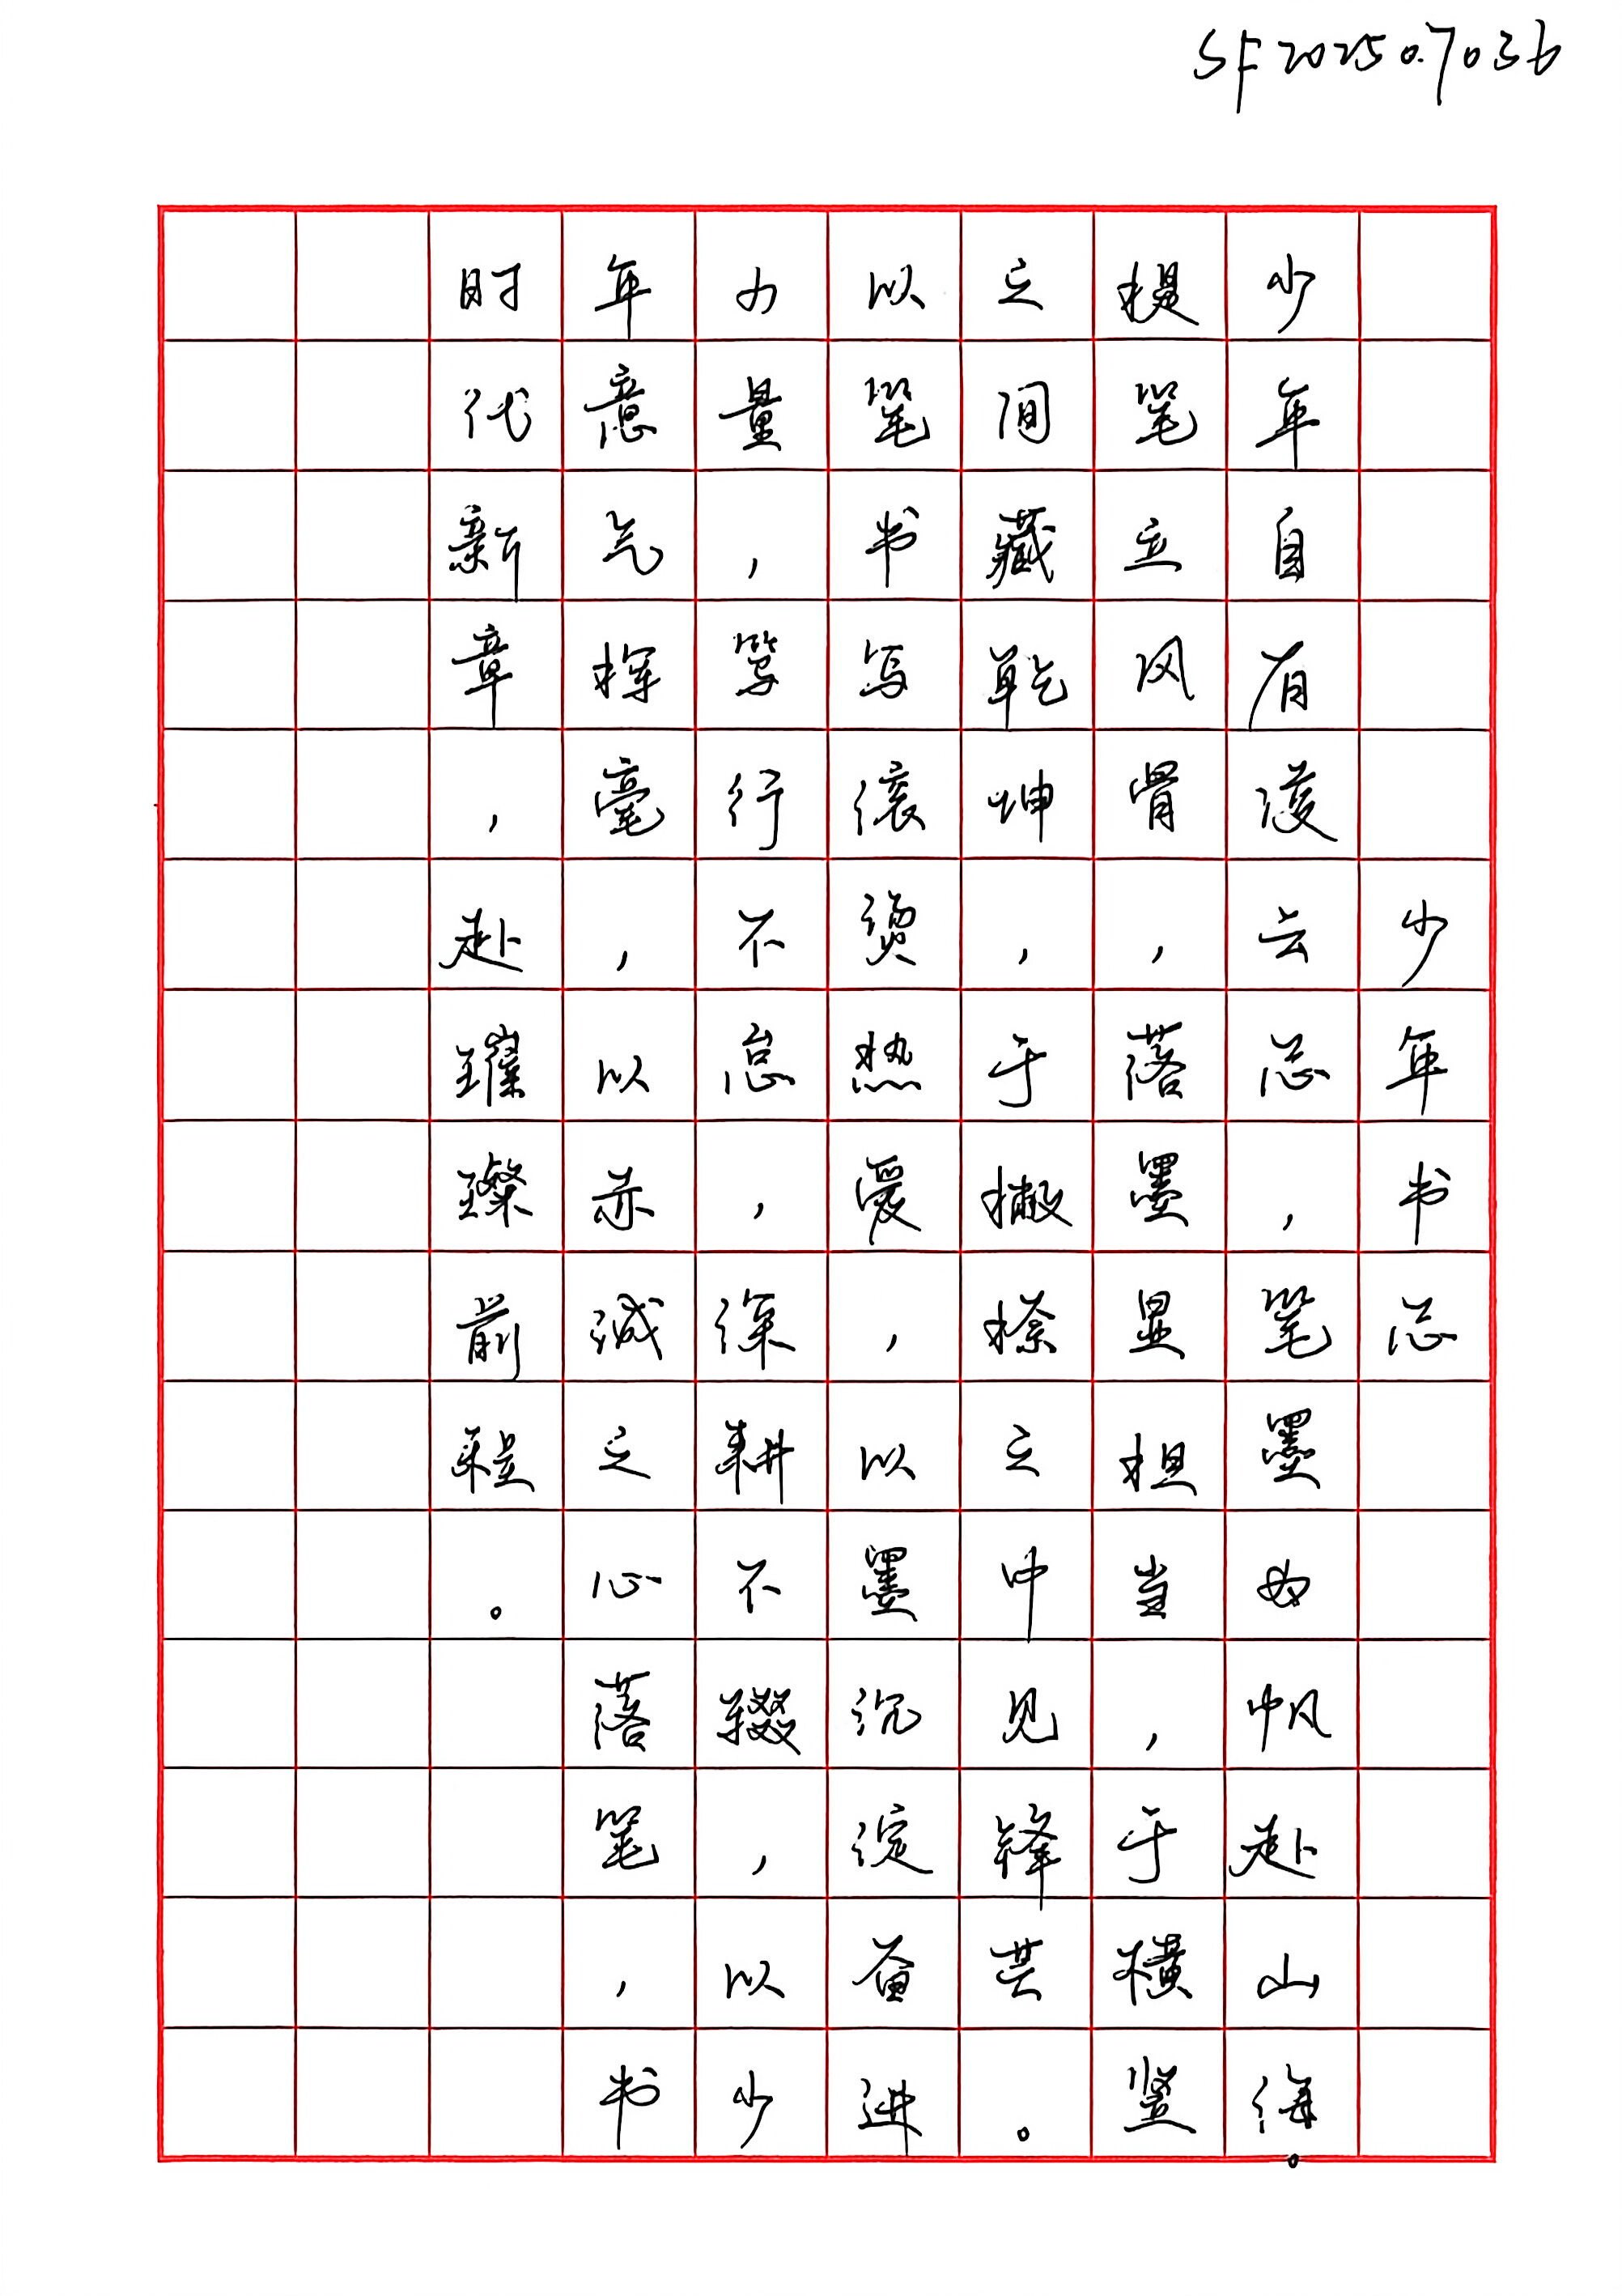 SF202507036
少年书志
少年自有凌云志，笔墨如帆赴山海。
提笔立风骨，落墨显担当，于横竖
之间藏乾坤，于撇捺之中见锋芒。
以笔书写滚烫热爱，以墨沉淀奋进
力量，笃行不怠，深耕不辍，以少
年意气挥毫，以赤诚之心落笔，书
时代新章，赴璀璨前程。